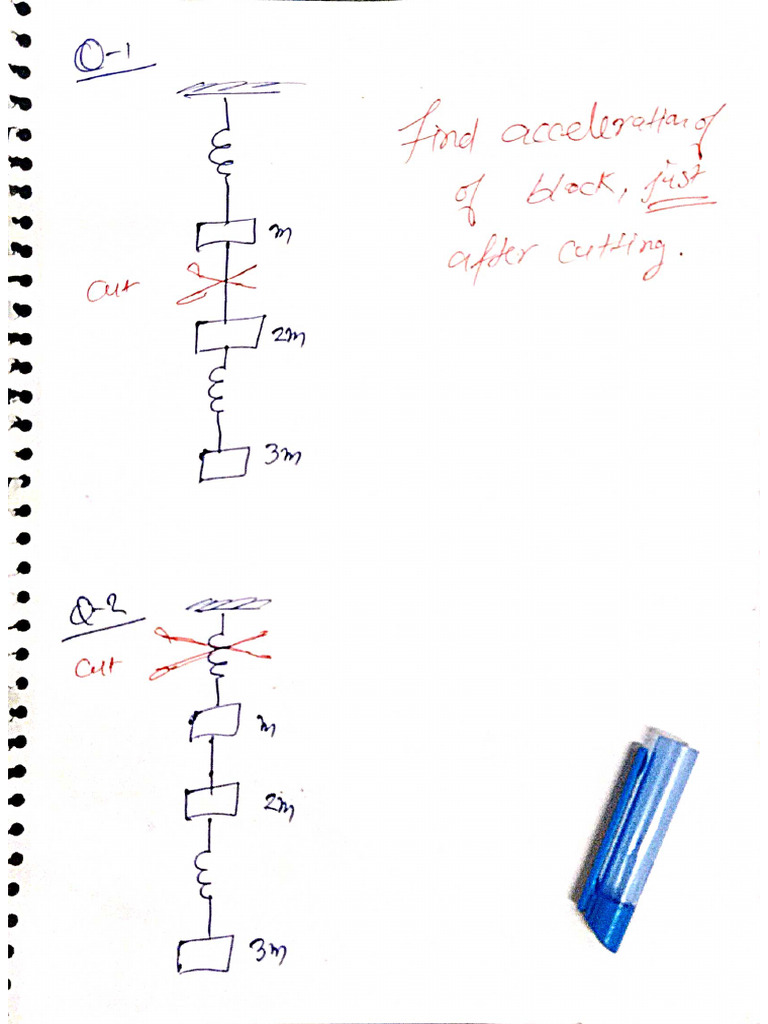 Q-1
Find acceleration of
of block, just
after cutting.
m
Cut
2m
3m
Q-2
Cut
m
2m
3m